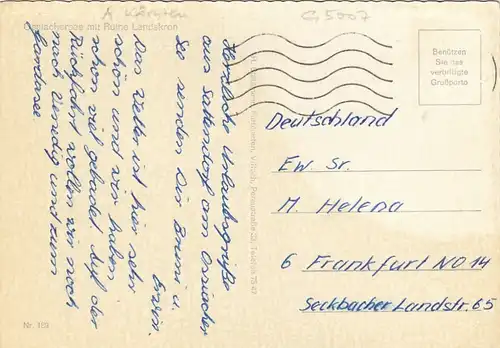 A Kärnten
G 5007
Ossiachersee mit Ruine Landskron
Herzliche Urlaubsgrüße
aus Sattendorf am Ossiacher
See senden Dir Bruni u.
Erwin.
Das Wetter ist hier sehr
schön und wir haben
schon viel gebadet. Auf der
Rückfahrt wollen wir noch
nach Venedig und zum
Gardasee.
Nr. 163
Benützen
Sie das
verbilligte
Grußporto
Deutschland
Ew. Sr.
M. Helena
6 Frankfurt NO 14
Seckbacher Landstr. 65